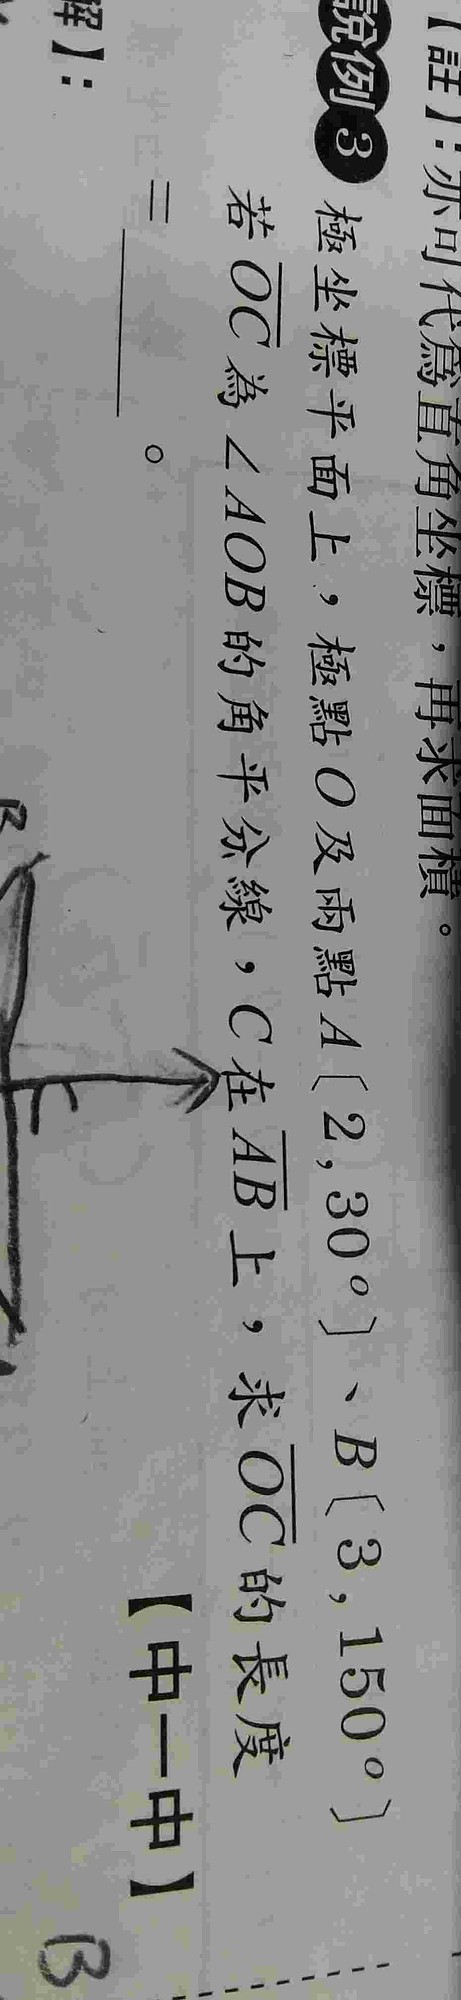 【註】：亦可代為直角坐標，再求面積。
說例3 極坐標平面上，極點O及兩點A〔2,30°〕、B〔3,150°〕
若OC為∠AOB的角平分線，C在AB上，求OC的長度
=______。 【中一中】
解】：
B